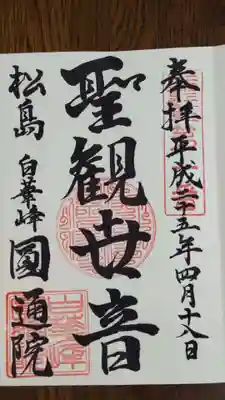 奉拝平成二十五年四月十八日
聖観世音
松島白華峰圓通院